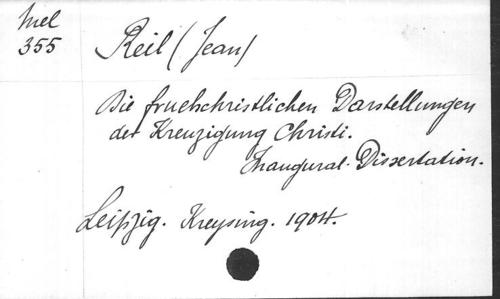 Mel
355
Reil (Jean)
Die fruehchristlichen Darstellungen
der Kreuzigung Christi.
Inaugural-Dissertation.
Leipzig. Kreysing. 1904.